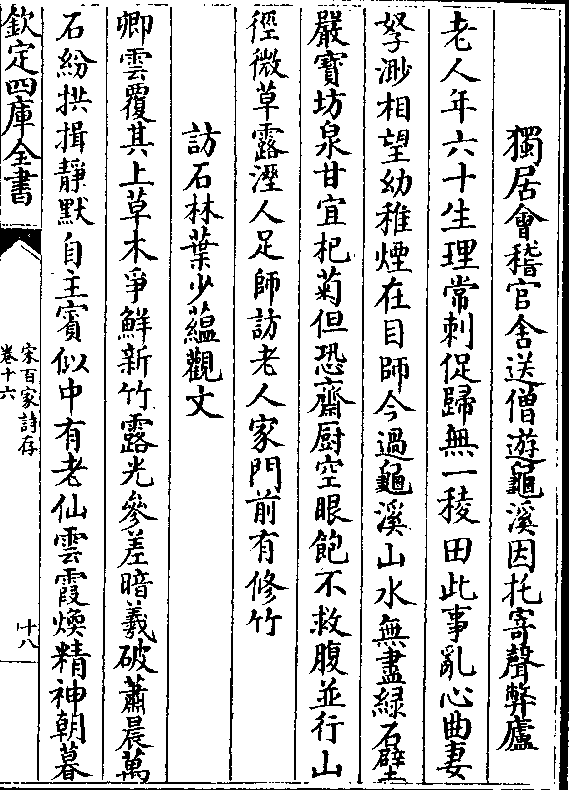 獨居會稽官舍送僧遊龜溪因托寄聲弊廬
老人年六十生理常刺促歸無一稜田此事亂心曲妻
孥渺相望幼稚煙在目師今過龜溪山水無盡緑石壁
嚴寶坊泉甘宜杞菊但恐齋厨空眼飽不救腹並行山
徑微草露溼人足師訪老人家門前有修竹
訪石林葉少藴觀文
卿雲覆其上草木爭鮮新竹露光參差暗羲破蕭晨萬
石紛拱揖靜默自主賓似中有老仙雲霞煥精神朝暮
欽定四庫全書
宋百家詩存
卷十六
十八